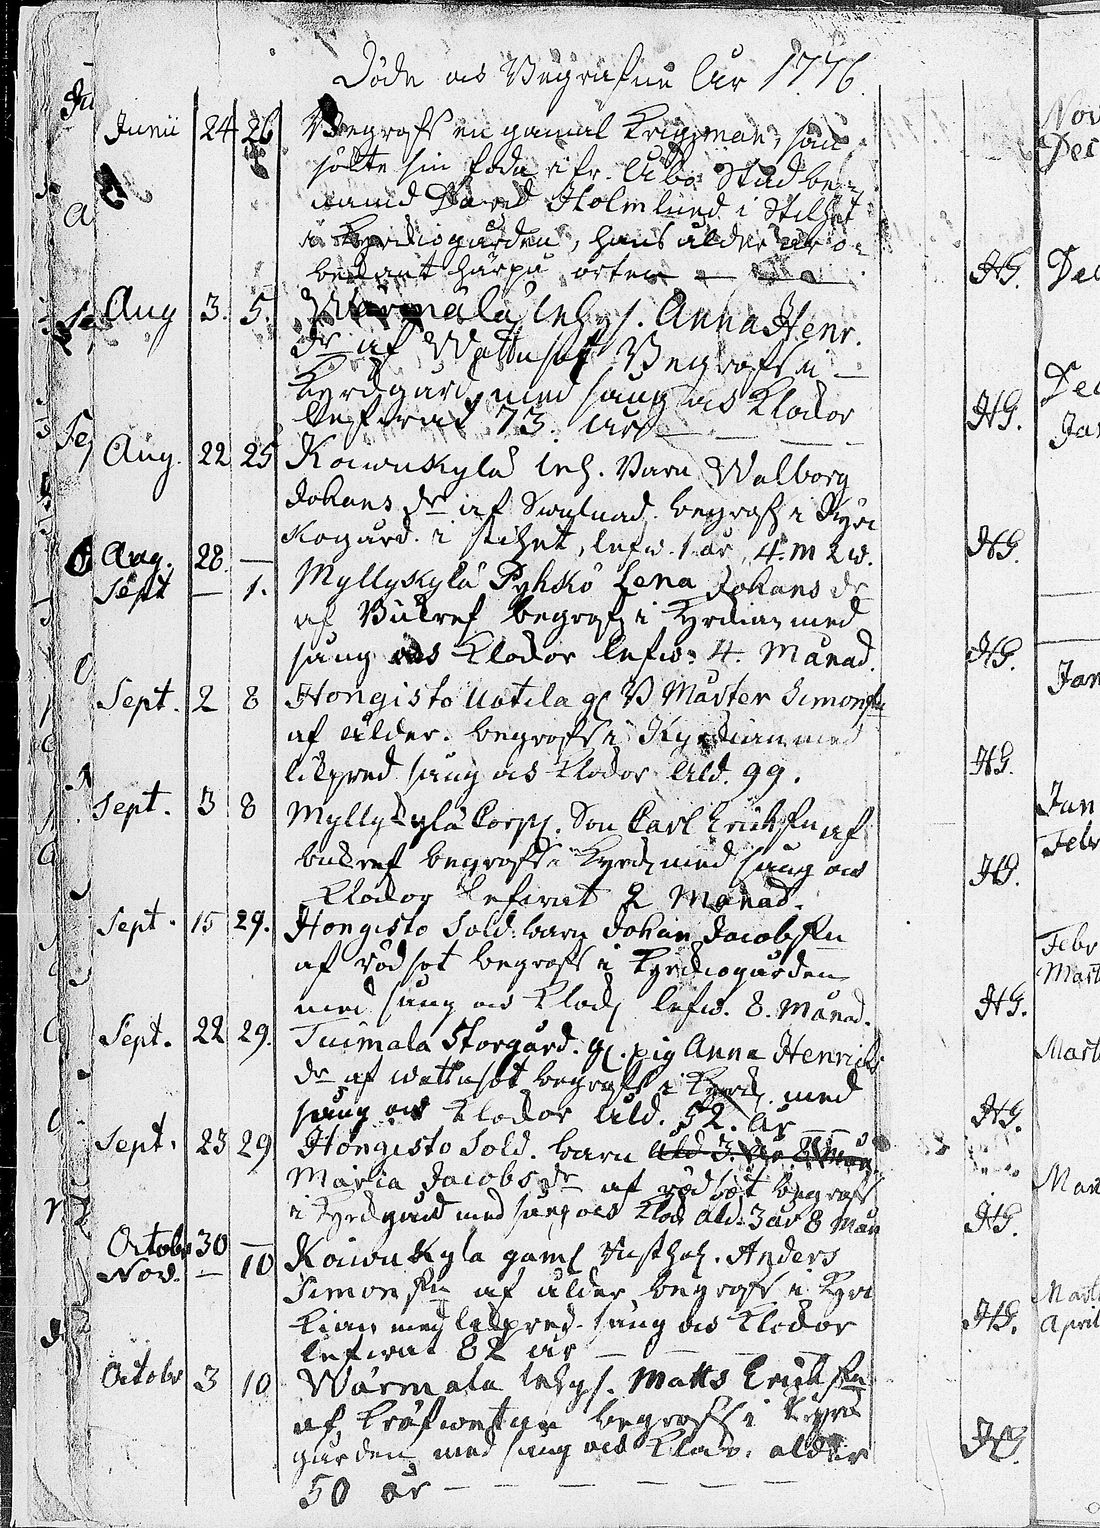 Döde och Begrafne År 1776.
Junii 24 26 Begrofs en gamal Krigzman, som
sökte sin föda ifr. Åbo Stad be-
nämd David Holmlund i Stilhet
i Kyrkiogården, hans ålder är o-
bekant härpå orten — — — HG.
Aug 3. 5. Wärmälä Inhys. Anna Henr.
dr af Wattusot Begrofs i
Kyrkgård. med sång och Klockor
lefwat 73. år — — — HG.
Aug. 22 25 Koiwukylä Inh. Barn Walborg
Johans dr af begrofs i Kyr
kogård. i stilhet, lefw. 1 år, 4. m 2 w. HG.
Aug. 28. —
Sept — 1. Myllykylä Pyhkö Lena Johans dr
af Bukref begrofs i Kyrkian med
sång och Klockor lefw: 4. Månad. HG.
Sept. 2 8 Hongisto Uotila Måster Simons
af ålder. begrofs i Kyrkian med
likpred sång och Klockor Åld. 99. HG.
Sept. 3 8 Myllykylä Corp. Son Carl Ericksn af
bukref begrofs i Kyrk med sång och
Klockor lefwat 2 Månad. HG.
Sept. 15 29. Hongisto Sold. barn Johan Jacobsn
af rödsot begrofs i Kyrkiogården
med sång och Klock lefw. 8. Månad. HG.
Sept. 22 29. Tuimala Storgård. pig Anna Henrichs
dr af wattusot begrofs i Kyrk. med
sång och Klockor Åld. 52. År — — HG.
Sept. 23 29 Hongisto Sold. barn åld 3. år 8 Mån
Maria Jacobs dr af rödsot begrofs
i Kyrkgård med sång och Klock åld. 3 år 8 Mån HG.
Octobr 30 —
Nov. — 10 Koiwukyla gaml Anders
Simonsn af ålder begrofs i Kyr
kian med likpred. sång och Klockor HG.
lefwat 82 år — — —
Octobr 3 10 Wärmälä Inhys. Matts Ericksn
af begrofs i Kyrk
gården med sång och Klock. ålder HG.
50 år — — — — —
Nov
Dec
Dec
Dec
Jan
Jan
Jan
Febr
Febr
Mart
Mart
Mar
Mart
April